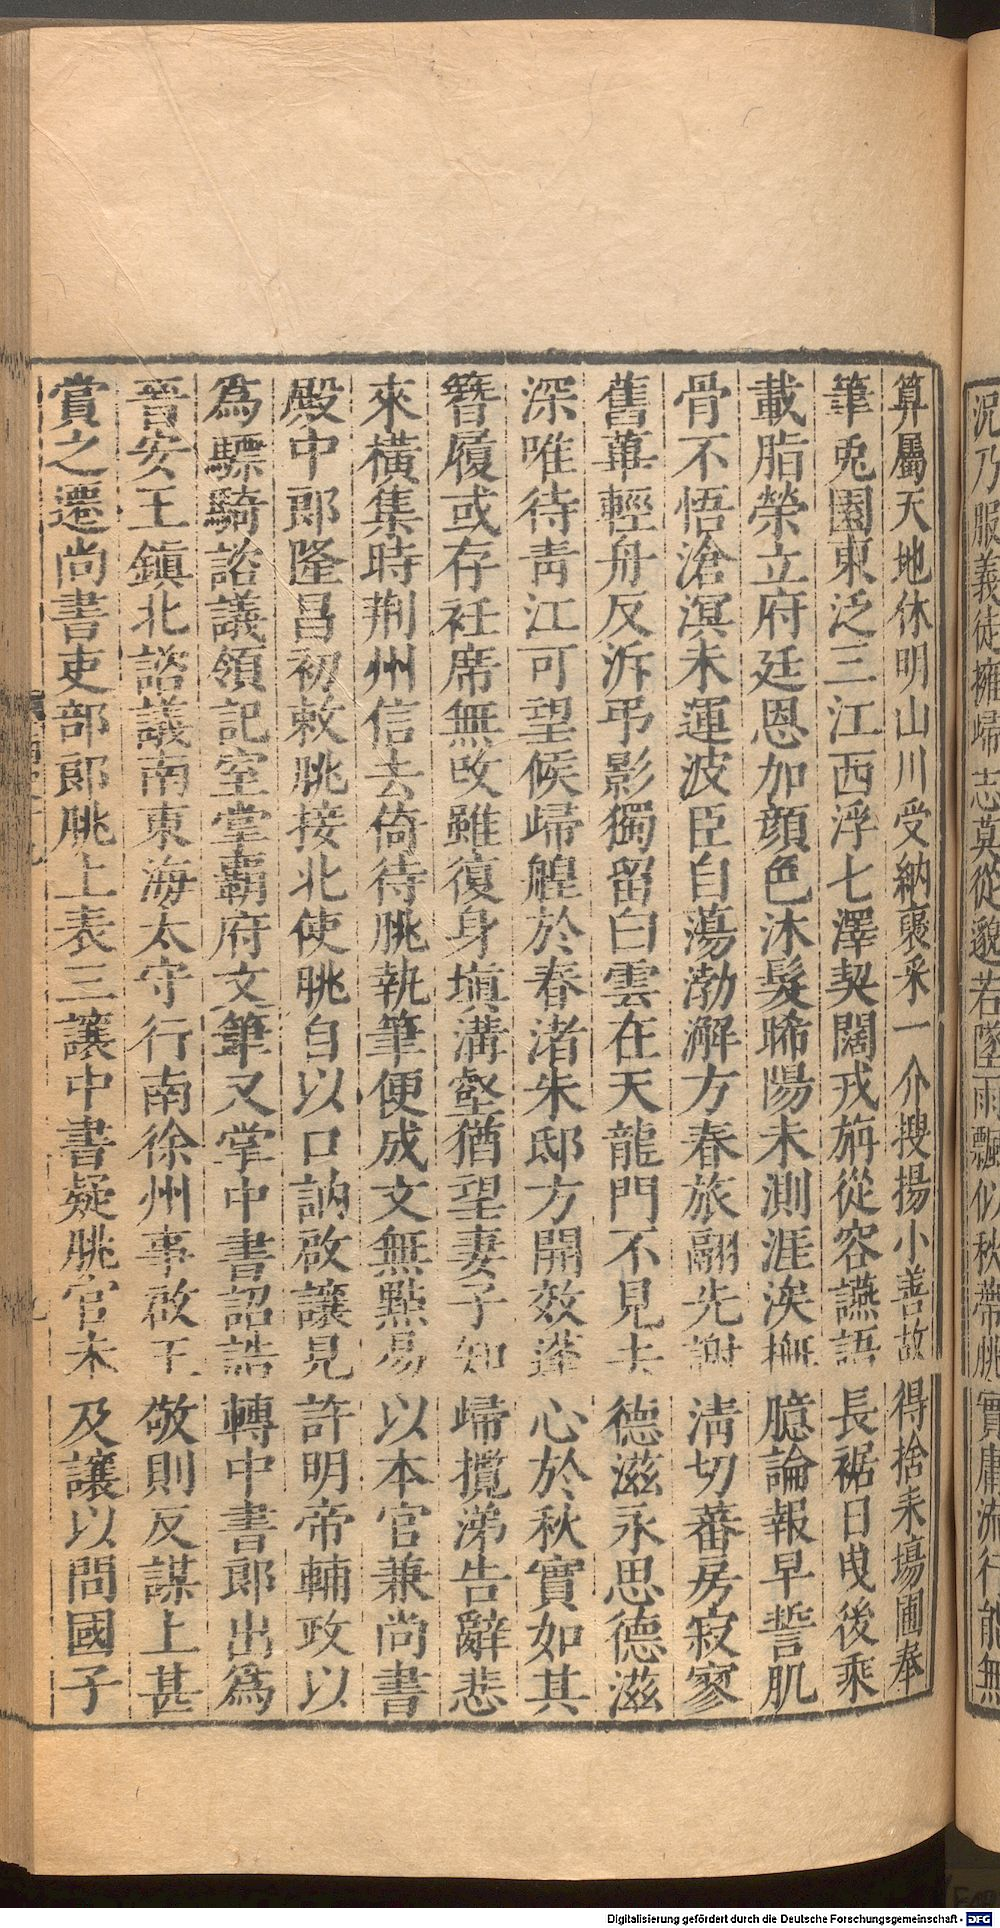 況乃服義徒擁歸志莫從邈若墜雨飄似秋蒂朓實庸流行能無
算屬天地休明山川受納裒采一介搜揚小善故得捨耒場圃奉
筆兎園東泛三江西浮七澤契闊戎旃從容讌語長裾日曳後乘
載脂榮立府廷恩加顔色沐髮晞陽未測涯涘撫臆論報早誓肌
骨不悟滄溟未運波臣自蕩渤澥方春旅翮先謝清切蕃房寂寥
舊蓽輕舟反泝弔影獨留白雲在天龍門不見去德滋永思德滋
深唯待靑江可望候歸艎於春渚朱邸方開效蓬心於秋實如其
簪履或存衽席無改雖復身塡溝壑猶望妻子知歸攬涕告辭悲
來橫集時荆州信去倚待朓執筆便成文無點易以本官兼尚書
殿中郎隆昌初敕朓接北使朓自以口訥啟讓見許明帝輔政以
爲驃騎諮議領記室掌霸府文筆又掌中書詔誥轉中書郎出爲
晉安王鎮北諮議南東海太守行南徐州事啟王敬則反謀上甚
賞之遷尚書吏部郎朓上表三讓中書疑朓官未及讓以問國子
Digitalisierung gefördert durch die Deutsche Forschungsgemeinschaft - DFG